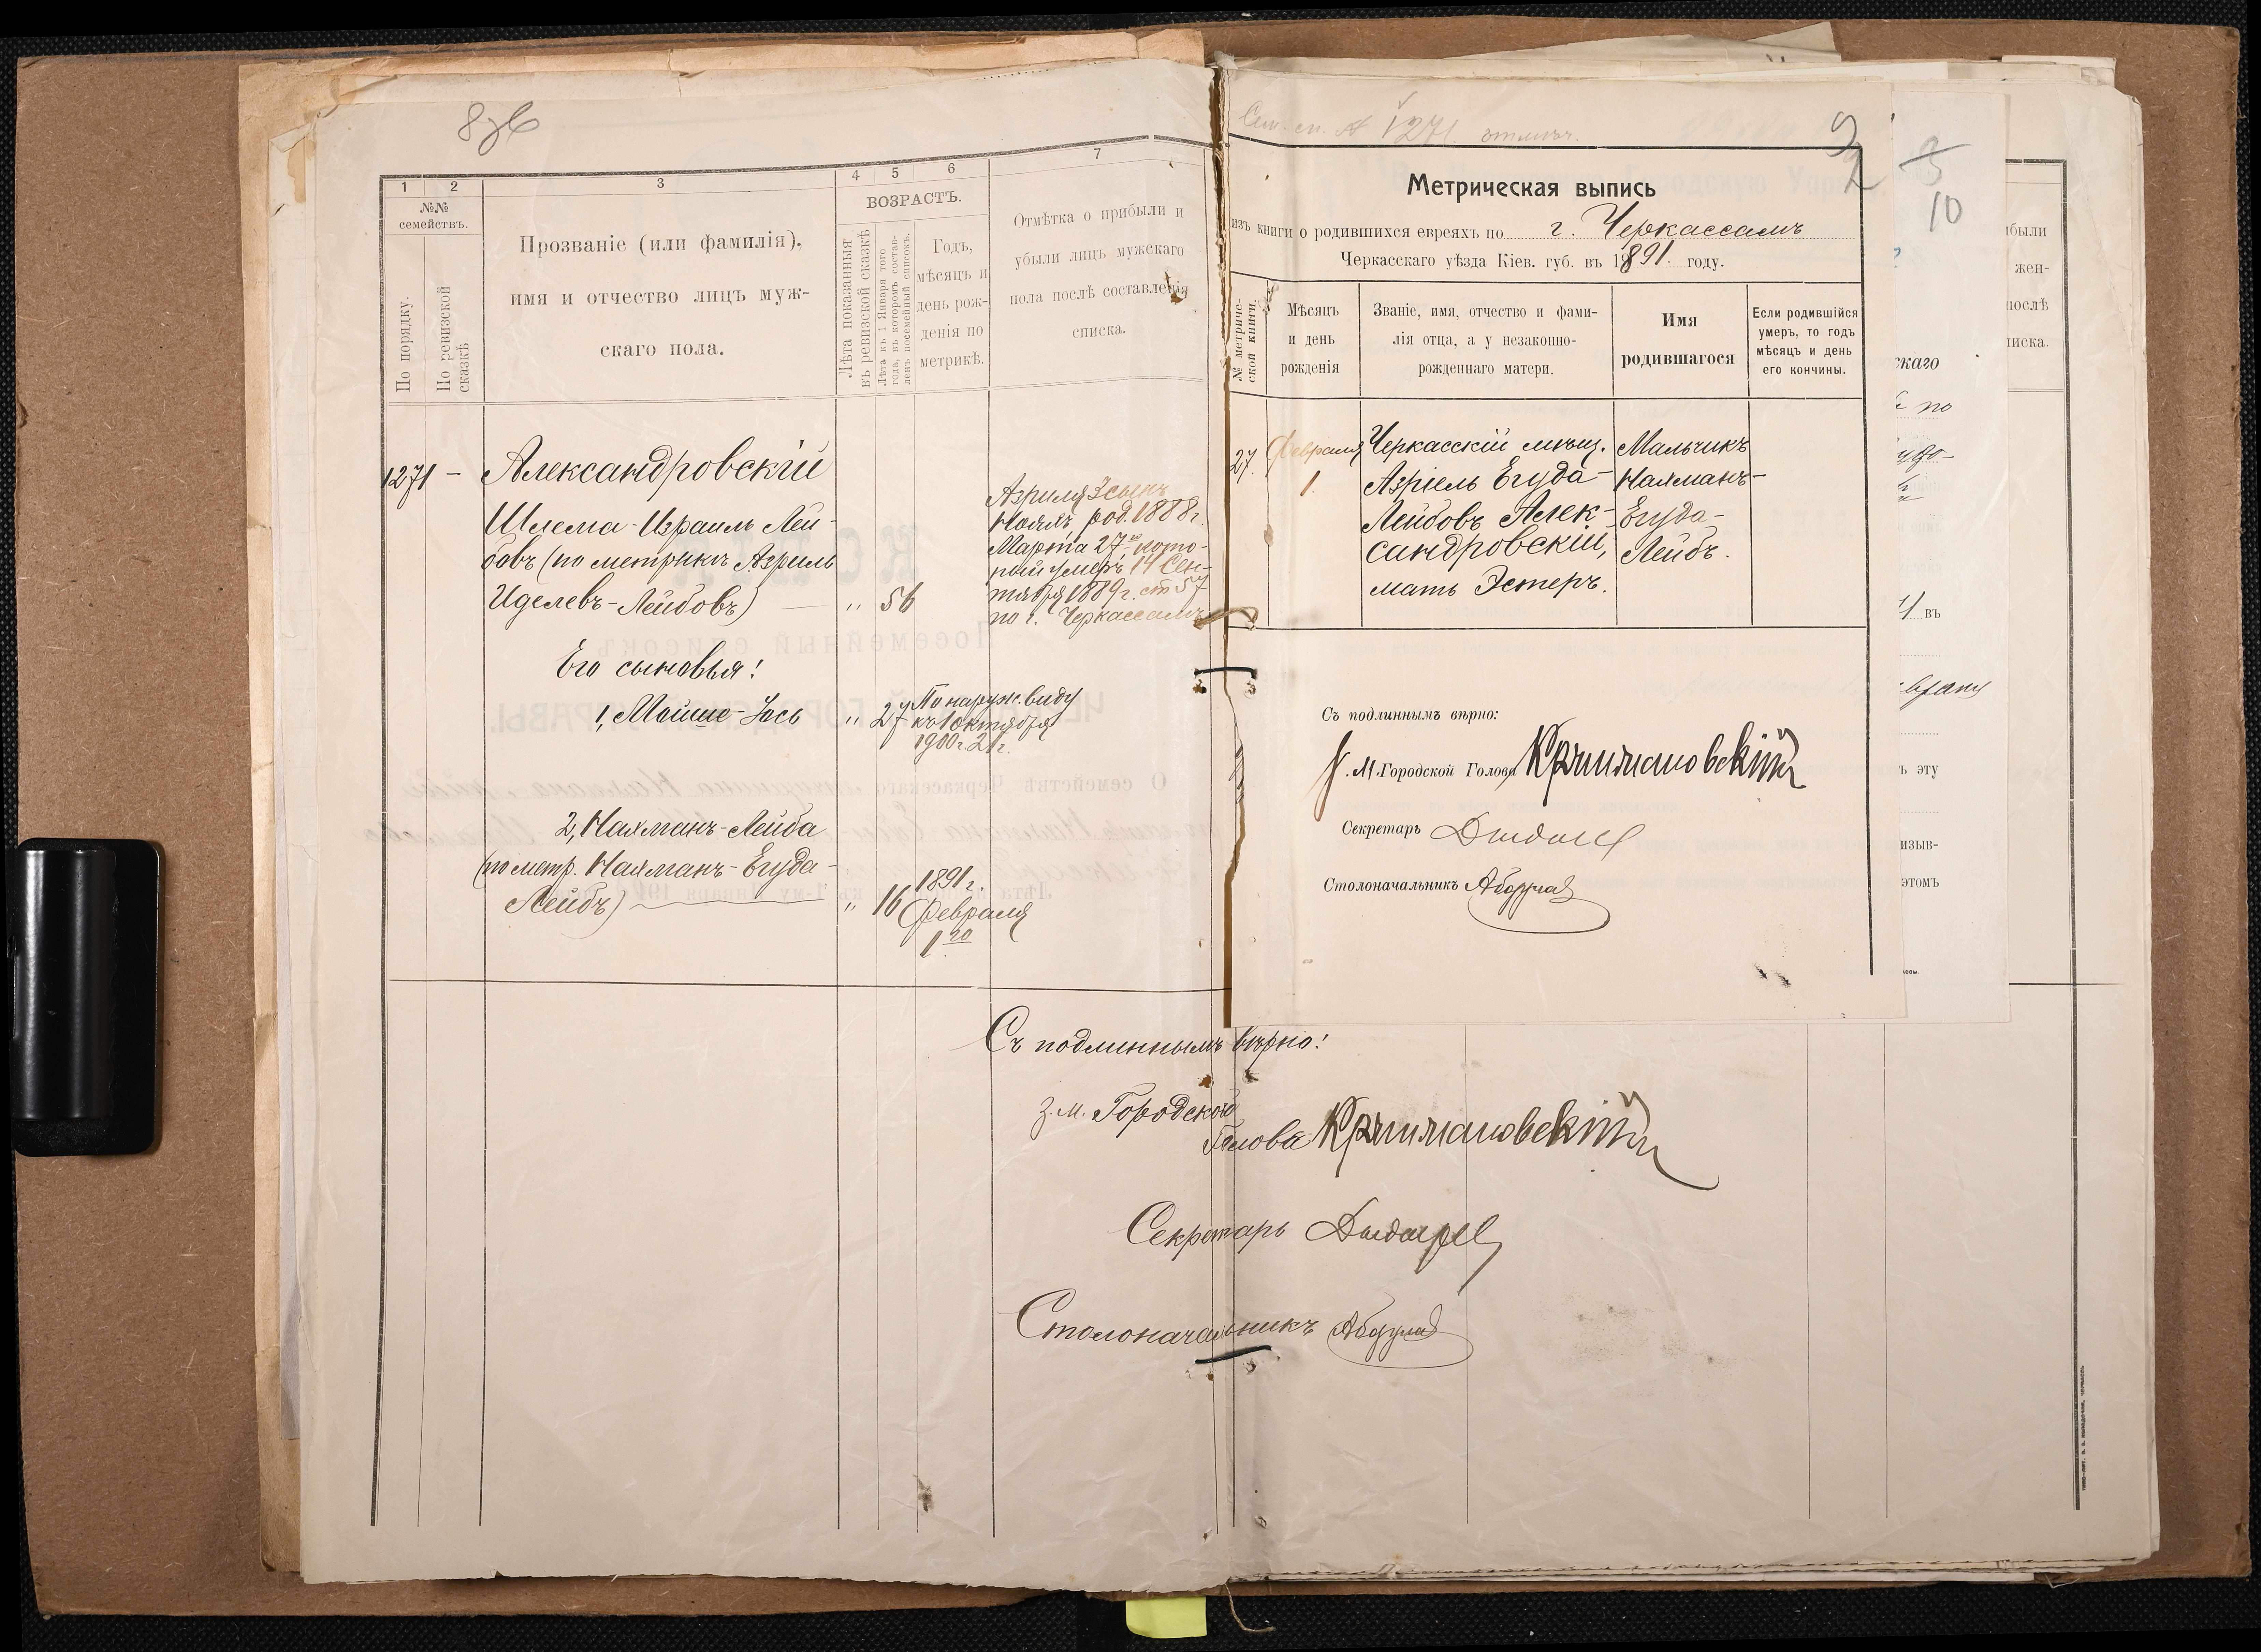 8 об
1
2
3
4
5
6
7
№№
семействъ.
По порядку.
По ревизской
сказкѣ
Прозваніе (или фамилія),
имя и отчество лицъ муж-
скаго пола.
ВОЗРАСТЪ.
Лѣта показанныя
въ ревизской сказкѣ
Лѣта къ 1 Января того
года, въ которомъ состав-
ленъ посемейный списокъ.
Годъ,
мѣсяцъ и
день рож-
денія по
метрикѣ.
Отмѣтка о прибыли и
убыли лицъ мужскаго
пола послѣ составленія
списка.
1271 -
Александровскій
Шлема-Израиль Лей-
бовъ (по метрикѣ Азриль
Иделевъ-Лейбовъ) — " 56
Азриля 3 сынъ
род. 1888 г.
Марта 27го кото-
рый умеръ 14 Сен-
тября 1889 г. ст 57
по г. Черкассамъ
Его сыновья!
1, Мойше-Іось " 27
По наруж. виду
къ 1 октября
1900 г. 21 г.
2, Нахманъ-Лейба
(по метр. Нахманъ-Егуда-
Лейбъ) " 16
1891 г.
Февраля
1го
Съ подлиннымъ вѣрно!
З. М. Городского
Голова Крыжановскій
Секретарь
Столоначальникъ
Сем. сп. № 1271
9
2
Метрическая выпись
изъ книги о родившихся евреяхъ по г. Черкассамъ
Черкасскаго уѣзда Кіев. губ. въ 1891. году.
№ метриче-
ской книги.
Мѣсяцъ
и день
рожденія
Званіе, имя, отчество и фами-
лія отца, а у незаконно-
рожденнаго матери.
Имя
родившагося
Если родившійся
умеръ, то годъ
мѣсяцъ и день
его кончины.
27. Февраля Черкасскій мѣщ. Мальчикъ
1. Азріель Егуда- Нахманъ-
Лейбовъ Алек- Егуда-
сандровскій, Лейбъ.
мать Эстеръ.
Съ подлиннымъ вѣрно:
З. М. Городской Голова Крыжановскій
Секретарь
Столоначальникъ
3
10
скаго
по
въ
ъ эту
изыв-
этомъ
были
жен-
послѣ
писка.